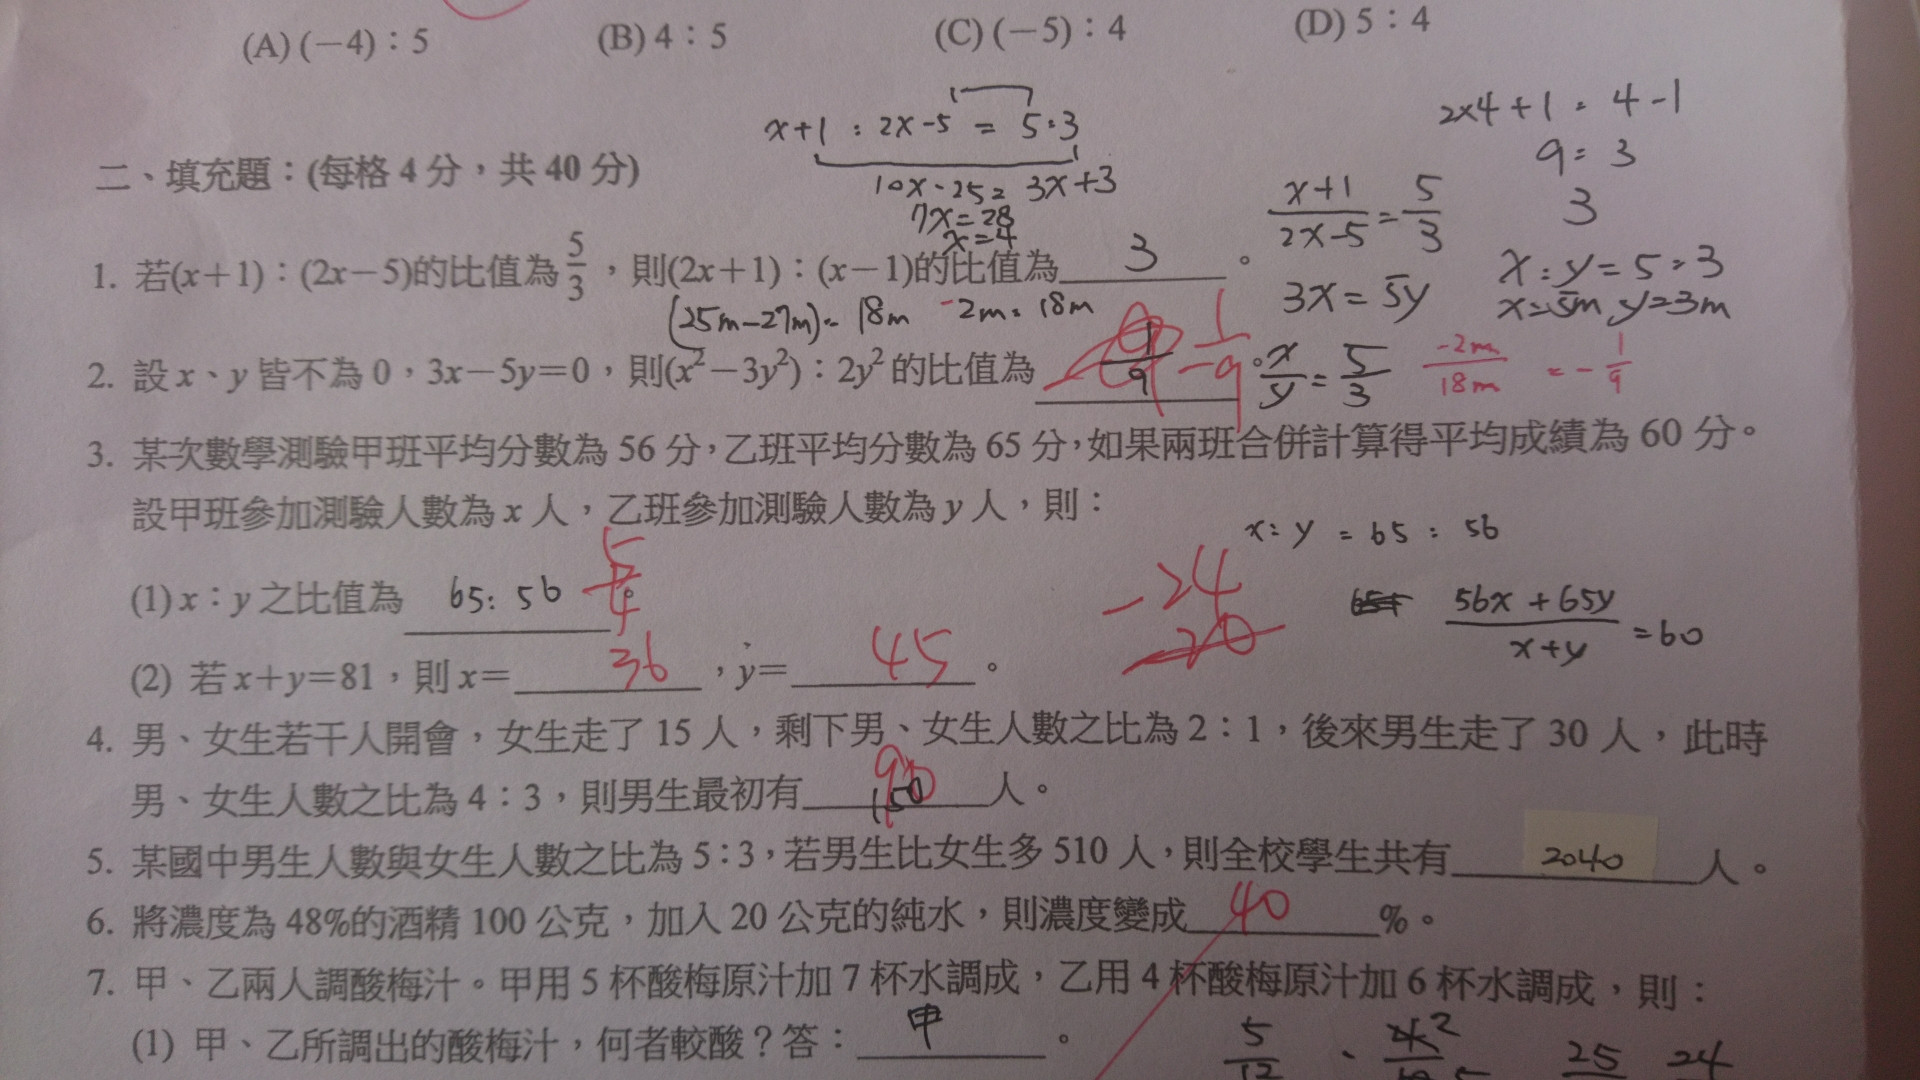 (A) (−4)：5 (B) 4：5 (C) (−5)：4 (D) 5：4
x+1 : 2x-5 = 5:3
2x4+1 : 4-1
9 : 3
3
二、填充題：(每格 4 分，共 40 分)
10x-25= 3x+3
7x=28
x=4
x+1/2x-5 = 5/3
1. 若(x＋1)：(2x－5)的比值為5/3，則(2x＋1)：(x－1)的比值為 3 。
3x = 5y
x : y = 5 : 3
x=5m y=3m
(25m-27m): 18m -2m: 18m
2. 設 x、y 皆不為 0，3x－5y＝0，則(x²－3y²)：2y² 的比值為 1/9 1/-9 。
x/y = 5/3
-2m/18m = -1/9
3. 某次數學測驗甲班平均分數為 56 分，乙班平均分數為 65 分，如果兩班合併計算得平均成績為 60 分。
設甲班參加測驗人數為 x 人，乙班參加測驗人數為 y 人，則：
x: y = 65 : 56
(1) x：y 之比值為 65: 56 5/4 。
-24
-20
56x + 65y/x+y = 60
(2) 若 x＋y＝81，則 x＝ 36 ，y＝ 45 。
4. 男、女生若干人開會，女生走了 15 人，剩下男、女生人數之比為 2：1，後來男生走了 30 人，此時
男、女生人數之比為 4：3，則男生最初有 150 90 人。
5. 某國中男生人數與女生人數之比為 5：3，若男生比女生多 510 人，則全校學生共有 2040 人。
6. 將濃度為 48%的酒精 100 公克，加入 20 公克的純水，則濃度變成 40 %。
7. 甲、乙兩人調酸梅汁。甲用 5 杯酸梅原汁加 7 杯水調成，乙用 4 杯酸梅原汁加 6 杯水調成，則：
(1) 甲、乙所調出的酸梅汁，何者較酸？答： 甲 。
5/12 、 4 2 5
25 24